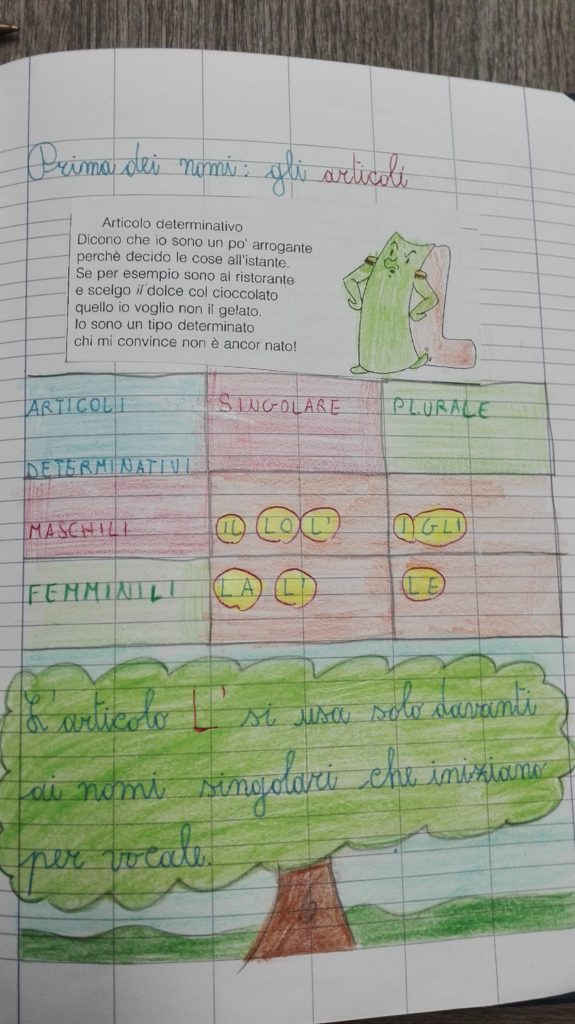 Prima dei nomi: gli articoli
Articolo determinativo
Dicono che io sono un po' arrogante
perchè decido le cose all'istante.
Se per esempio sono al ristorante
e scelgo il dolce col cioccolato
quello io voglio non il gelato.
Io sono un tipo determinato
chi mi convince non è ancor nato!
ARTICOLI DETERMINATIVI SINGOLARE PLURALE
MASCHILI IL LO L' I GLI
FEMMINILI LA L' LE
L'articolo L' si usa solo davanti
ai nomi singolari che iniziano
per vocale.